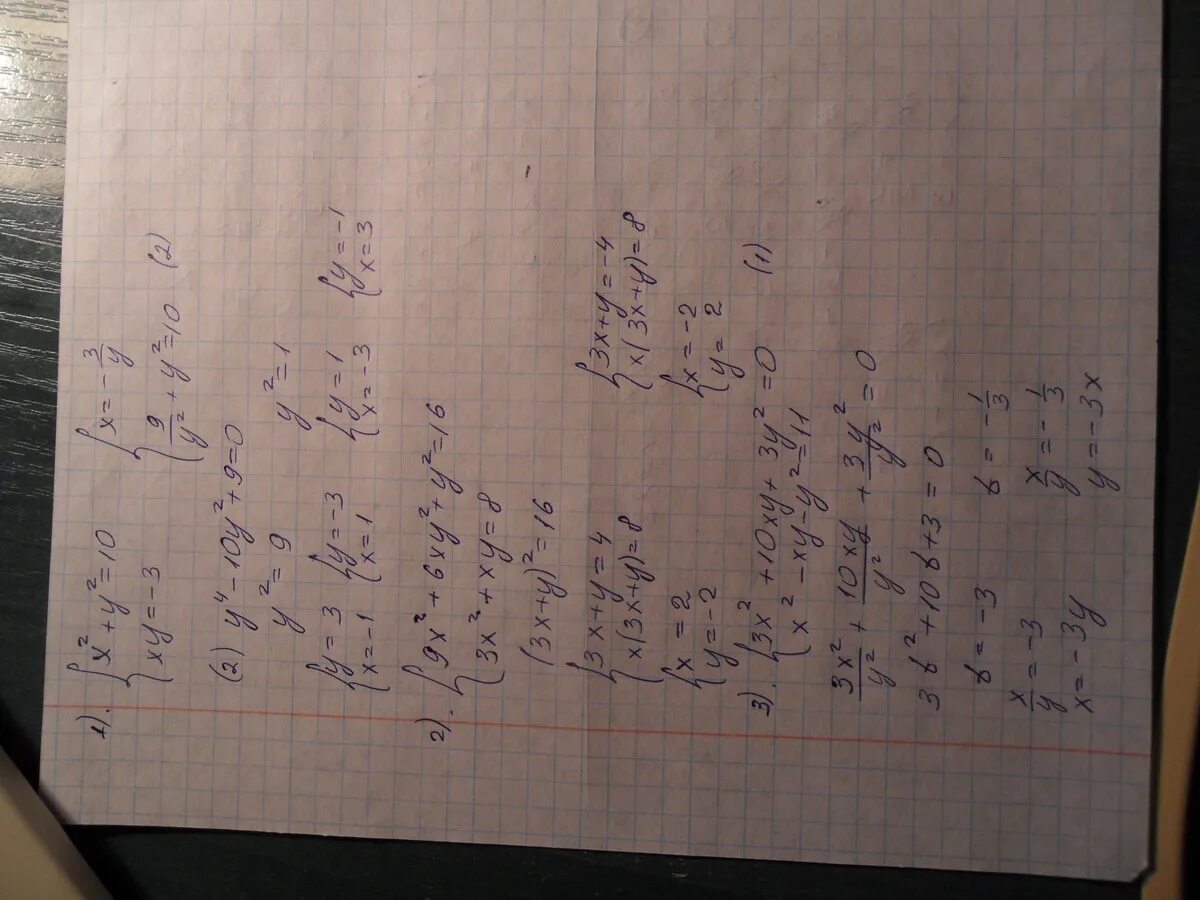 1). { x² + y² = 10 { x = - 3/y
xy = -3 9/y² + y² = 10 (2)
(2) y⁴ - 10y² + 9 = 0
y² = 9 y² = 1
{ y = 3 { y = -3 { y = 1 { y = -1
x = -1 x = 1 x = -3 x = 3
2). { 9x² + 6xy² + y² = 16
3x² + xy = 8
(3x+y)² = 16
{ 3x+y = 4 { 3x+y = -4
x(3x+y) = 8 x(3x+y) = 8
{ x = 2 { x = -2
y = -2 y = 2
3). { 3x² + 10xy + 3y² = 0 (1)
x² - xy - y² = 11
3x²/y² + 10xy/y² + 3y²/y² = 0
3b² + 10b + 3 = 0
b = -3 b = -1/3
x/y = -3 x/y = -1/3
x = -3y y = -3x